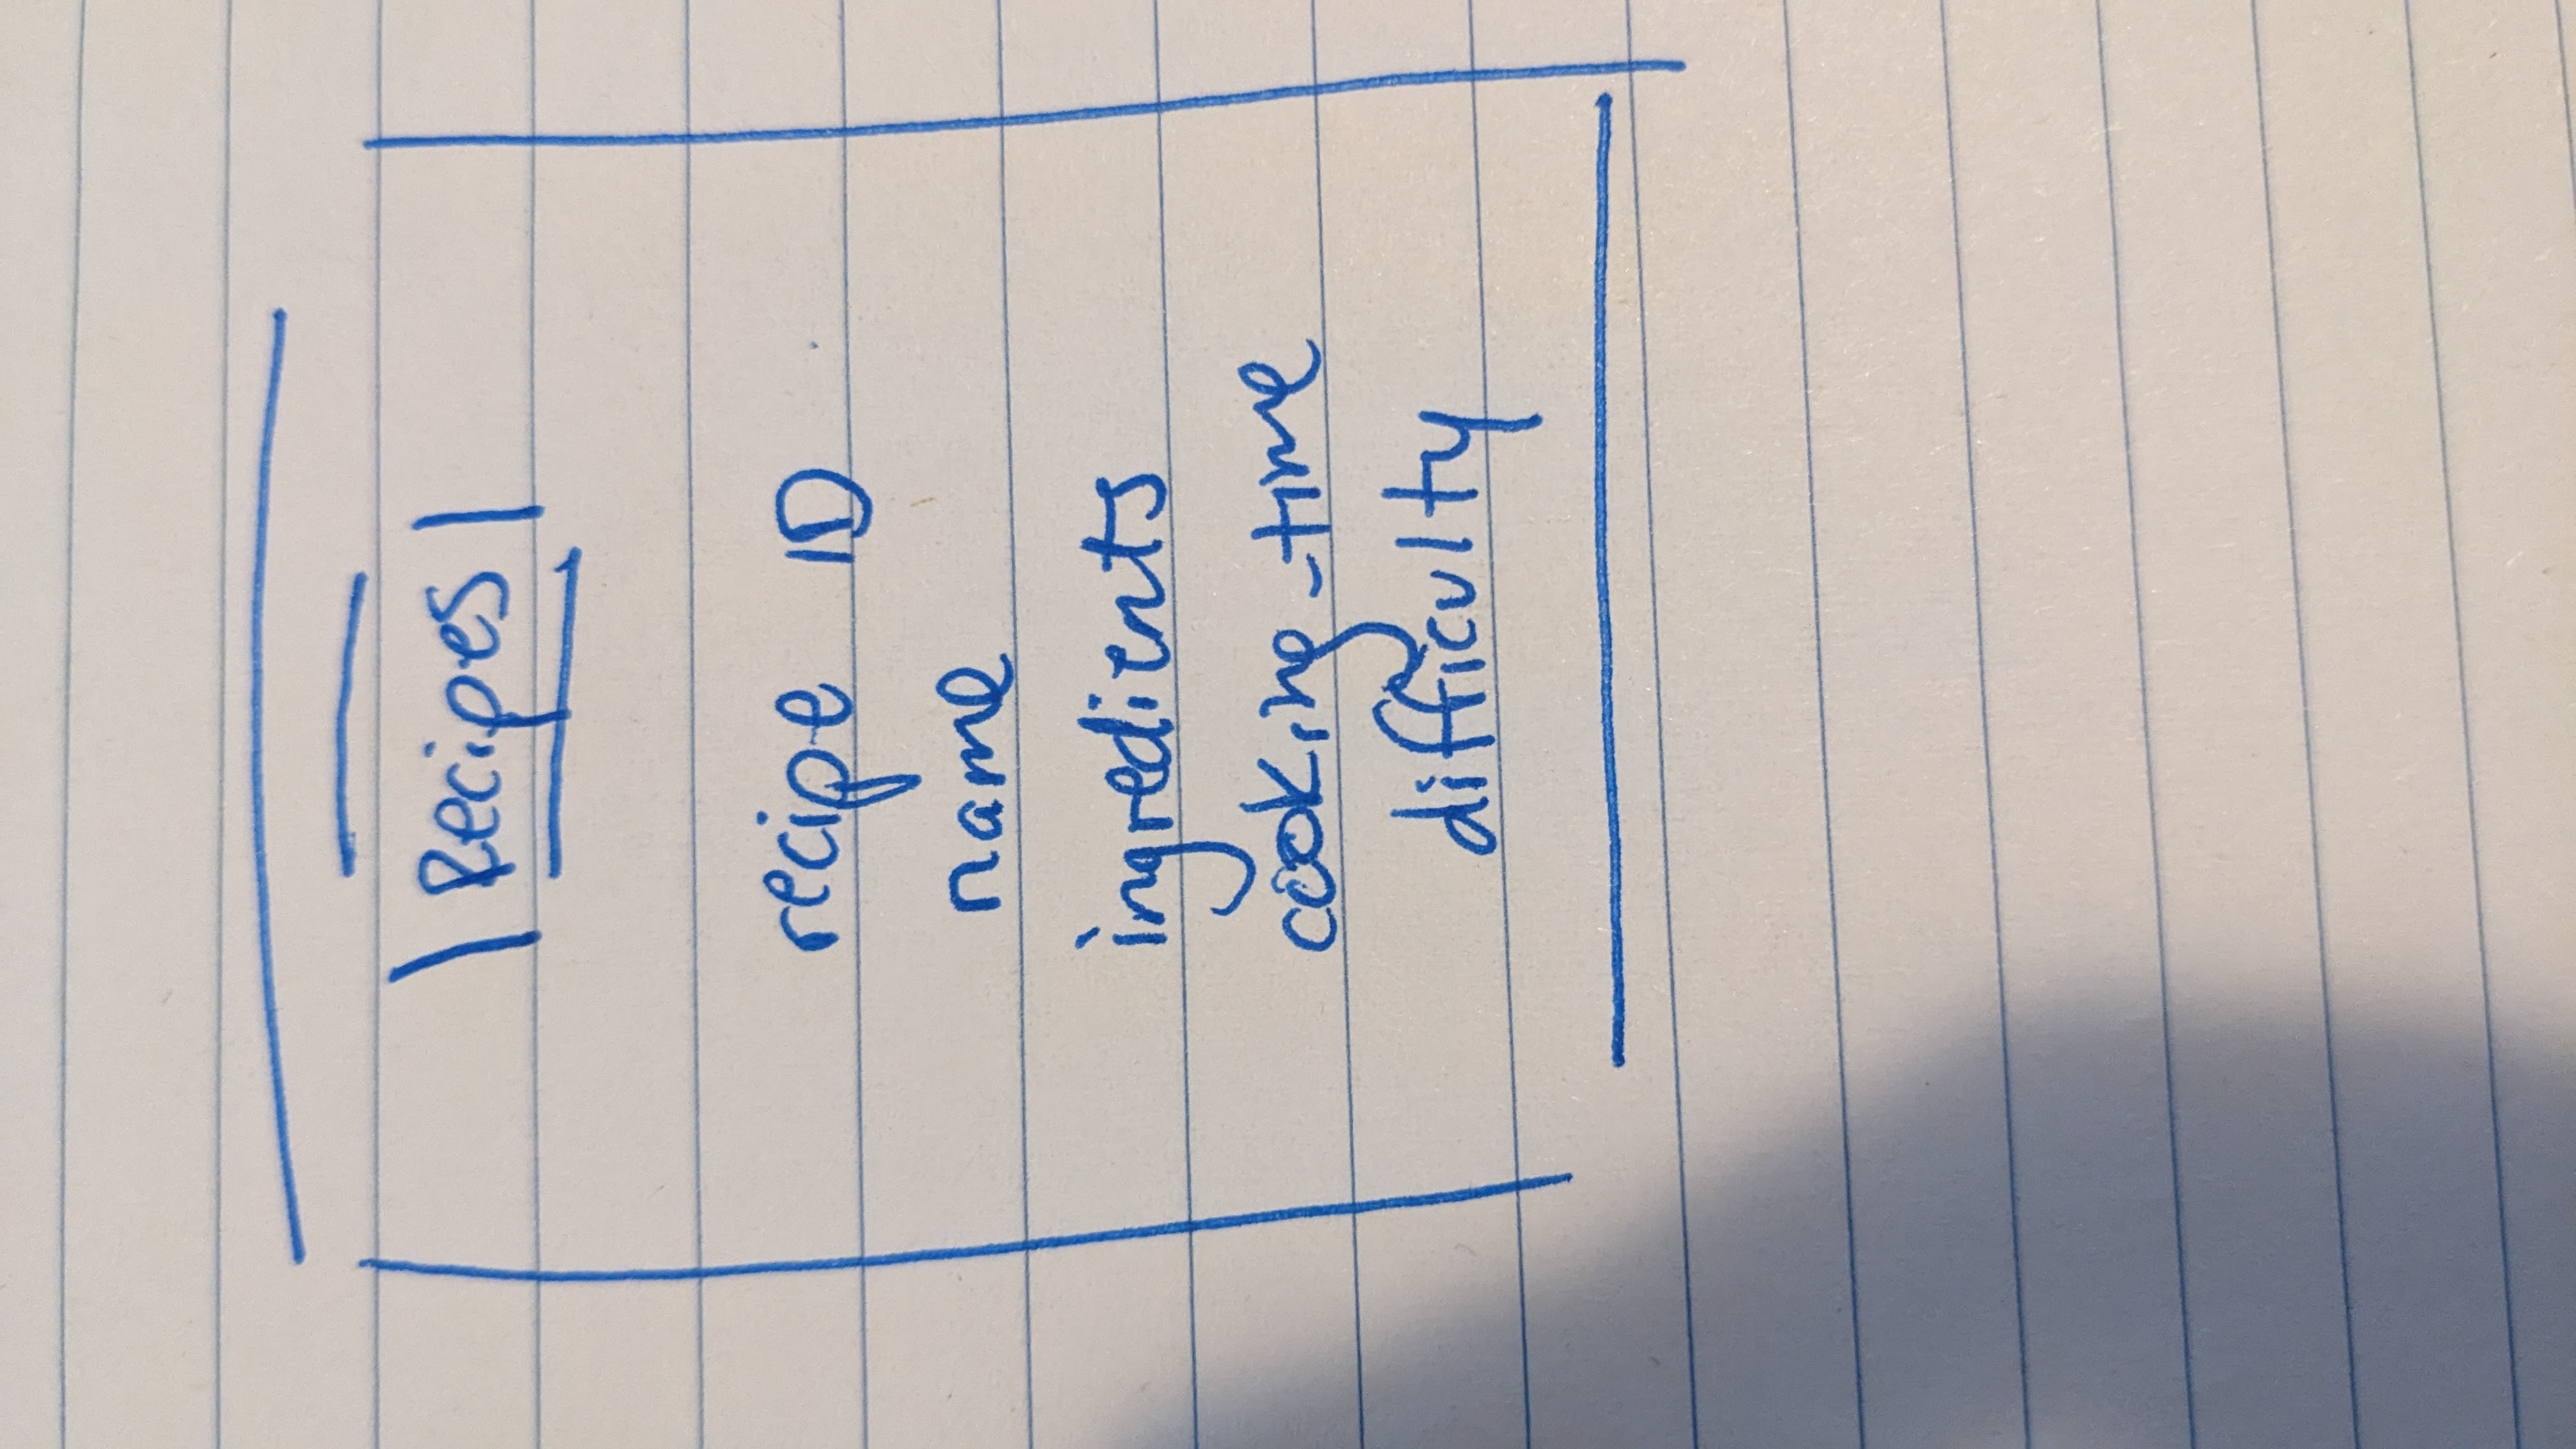 Recipes
recipe ID
name
ingredients
cooking-time
difficulty